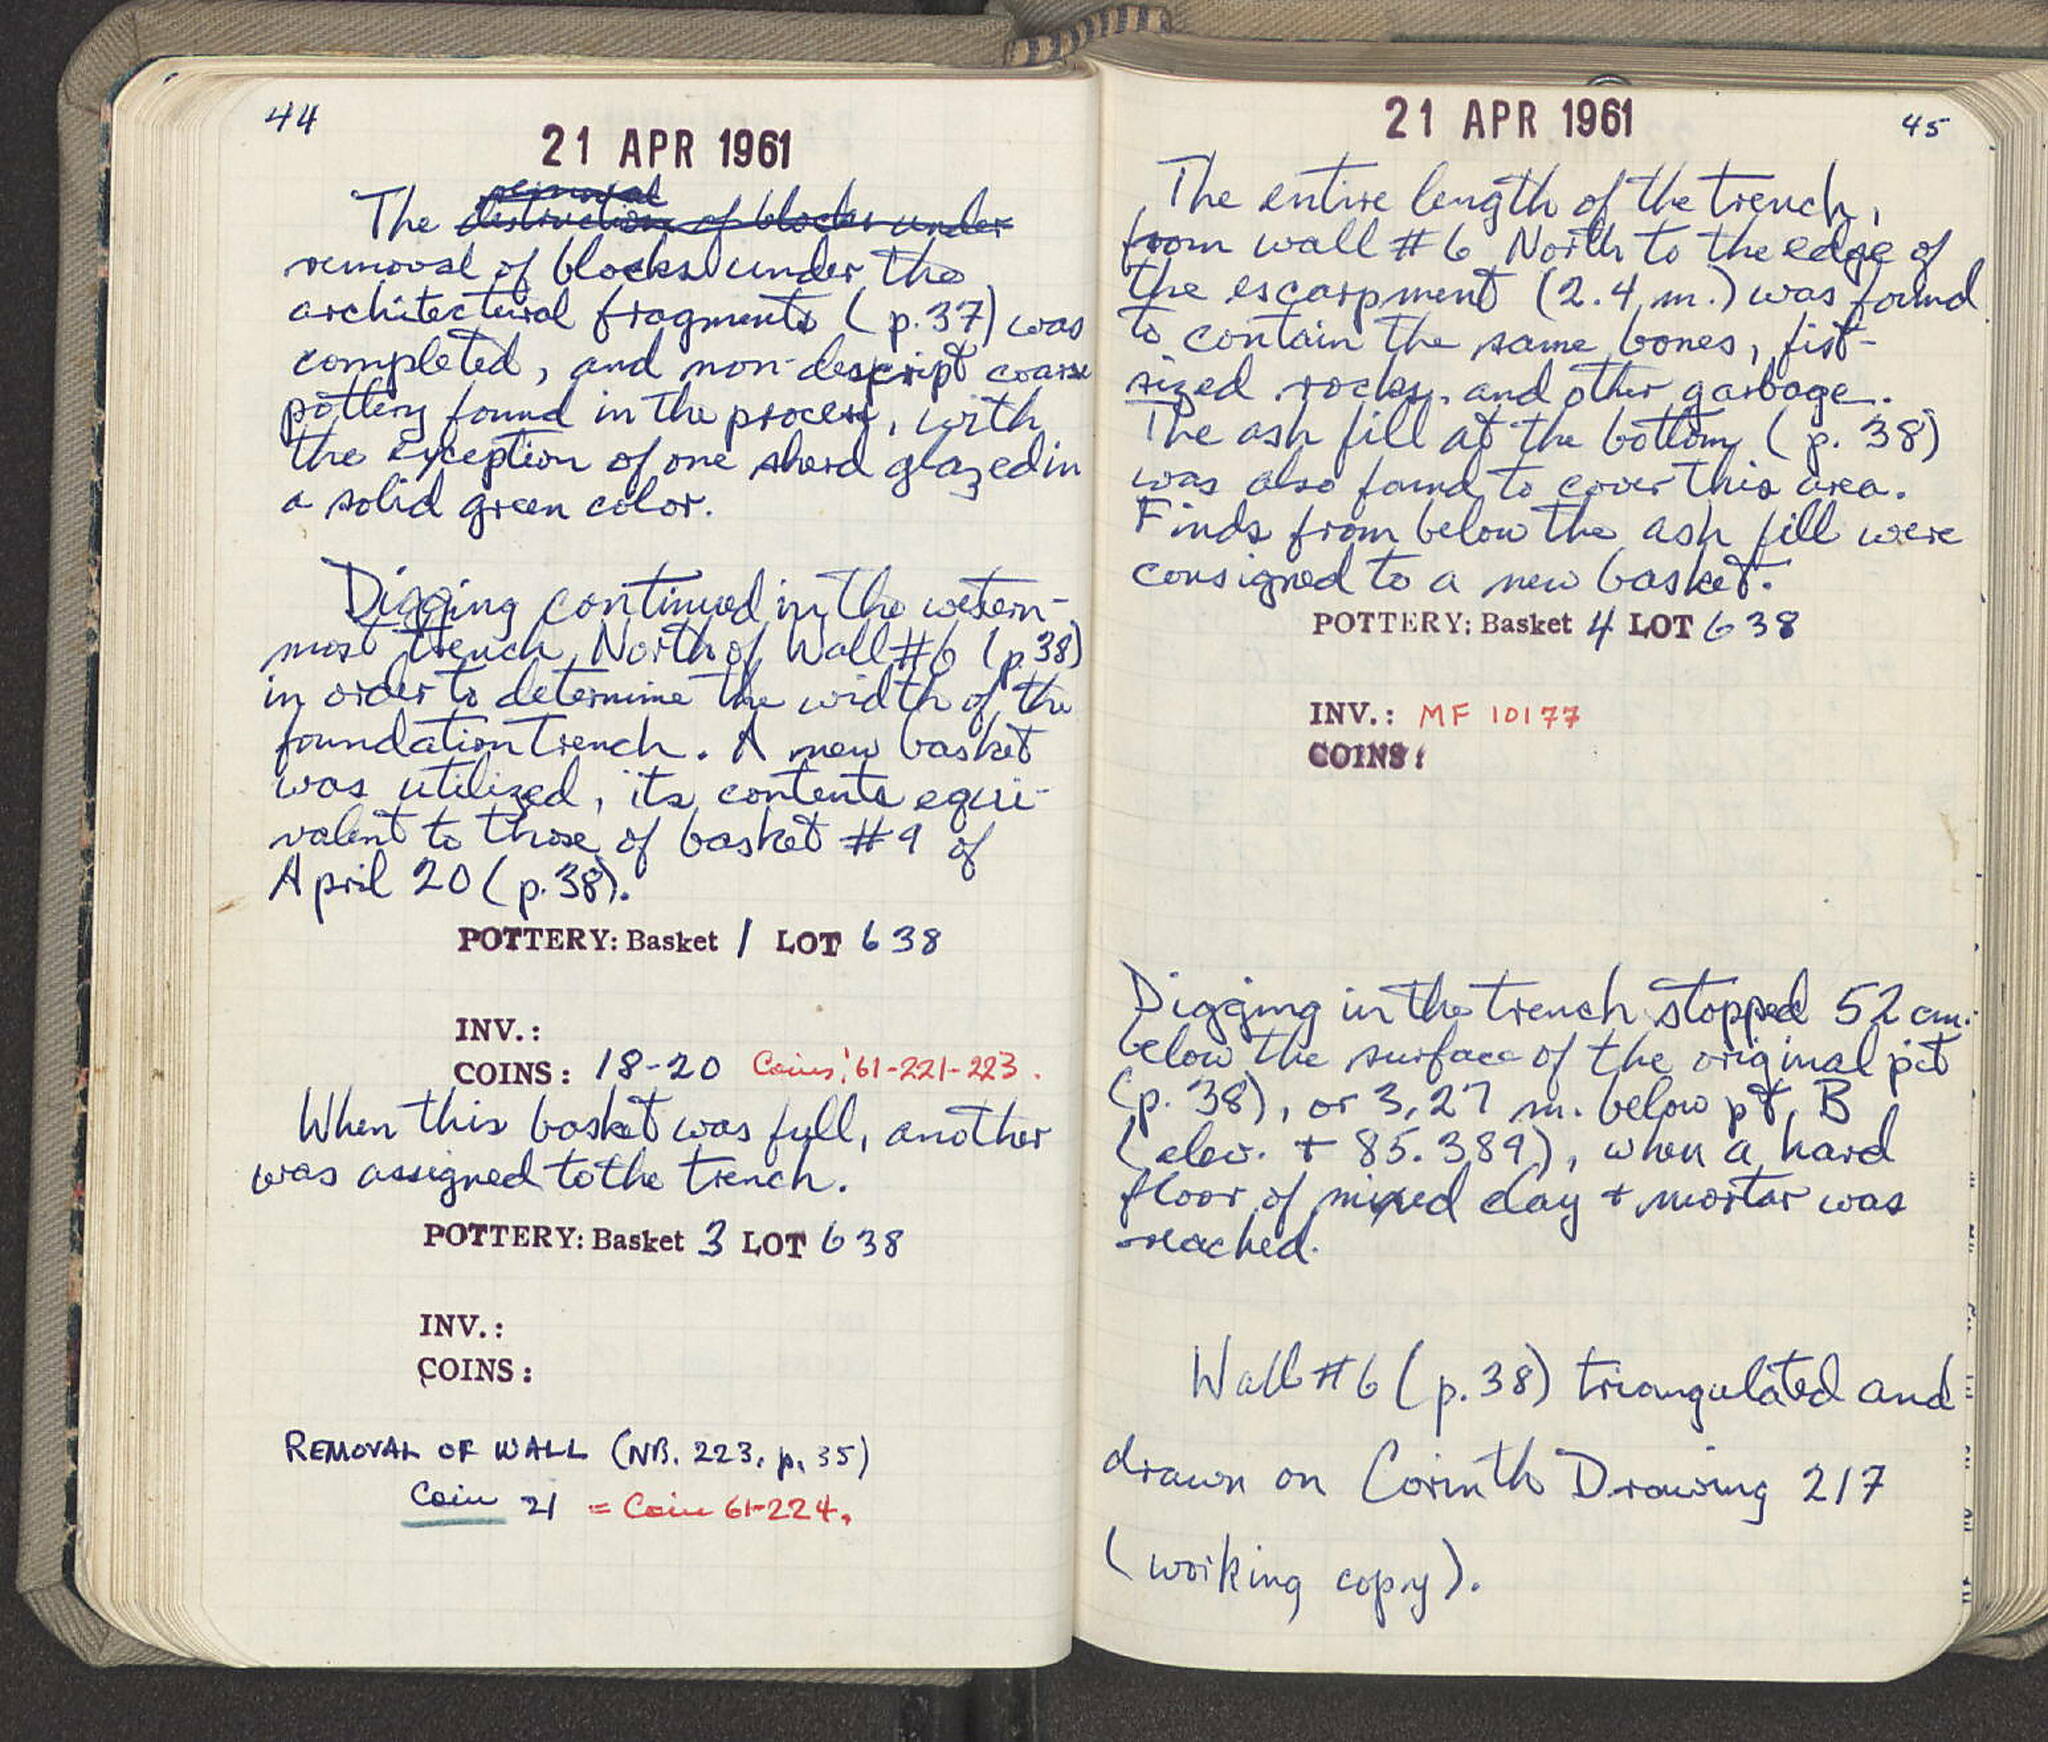 44
21 APR 1961
removal
The destruction of blocks under
removal of blocks under the
architectural fragments (p.37) was
completed, and non-descript coarse
pottery found in the process, with
the exception of one sherd glazed in
a solid green color.
Digging continued in the western-
most trench North of Wall #6 (p.38)
in order to determine the width of the
foundation trench. A new basket
was utilized, its contents equi-
valent to those of basket #9 of
April 20 (p.38).
POTTERY: Basket 1 LOT 638
INV.:
COINS: 18-20 Coins: 61-221-223.
When this basket was full, another
was assigned to the trench.
POTTERY: Basket 3 LOT 638
INV.:
COINS:
REMOVAL OF WALL (NB. 223, p. 35)
Coin 21 = Coin 61-224.
21 APR 1961
45
The entire length of the trench,
from wall #6 North to the edge of
the escarpment (2.4 m.) was found
to contain the same bones, fist-
sized rocks, and other garbage.
The ash fill at the bottom (p. 38)
was also found to cover this area.
Finds from below the ash fill were
consigned to a new basket.
POTTERY: Basket 4 LOT 638
INV.: MF 10177
COINS:
Digging in the trench stopped 52 cm.
below the surface of the original pit
(p. 38), or 3,27 m. below pt. B
(elev. + 85.389), when a hard
floor of mixed clay + mortar was
reached.
Wall #6 (p.38) triangulated and
drawn on Corinth Drawing 217
(working copy).